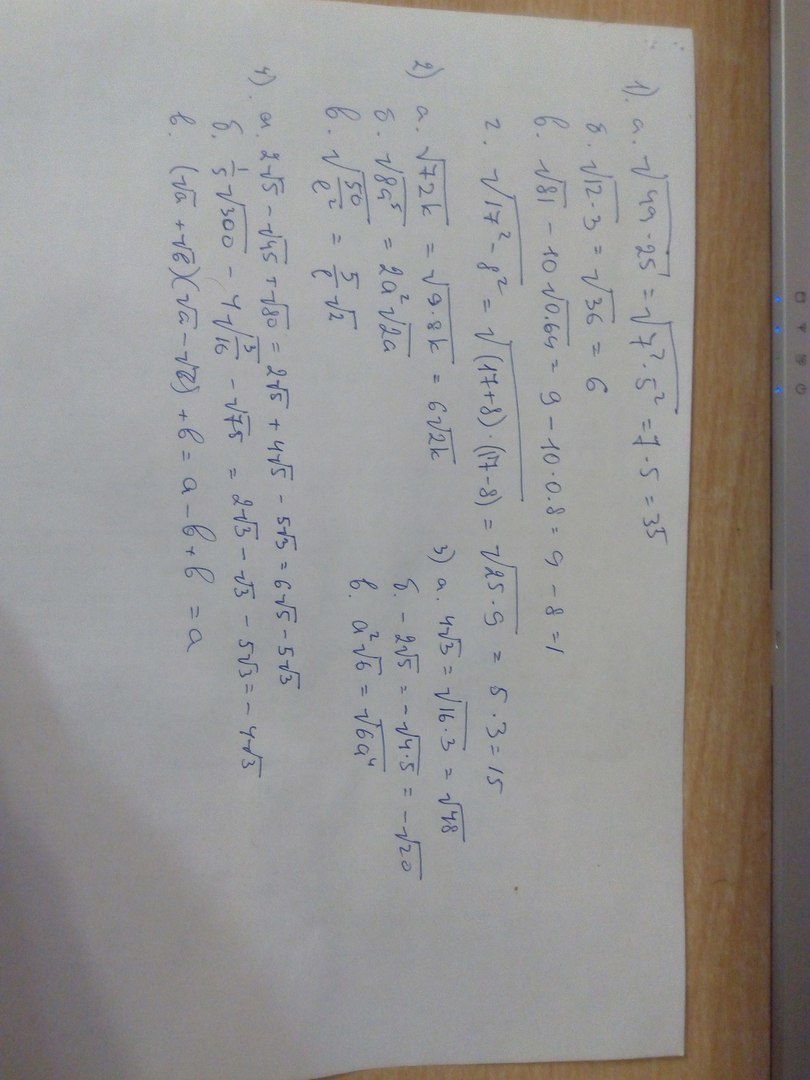 1). а. √49·25 = √7²·5² = 7·5 = 35
б. √12·3 = √36 = 6
в. √81 - 10√0.64 = 9 - 10·0.8 = 9 - 8 = 1
г. √17²-8² = √(17+8)·(17-8) = √25·9 = 5·3 = 15
2) а. √72k = √9·8k = 6√2k
б. √8a⁵ = 2a²√2a
в. √50/в² = 5/в √2
3) а. 4√3 = √16·3 = √48
б. -2√5 = -√4·5 = -√20
в. a²√6 = √6a⁴
4). а. 2√5 - √45 + √80 = 2√5 + 4√5 - 5√3 = 6√5 - 5√3
б. 1/5√300 - 4√3/16 - √75 = 2√3 - √3 - 5√3 = -4√3
в. (√a + √в)(√a - √в) + в = a - в + в = a